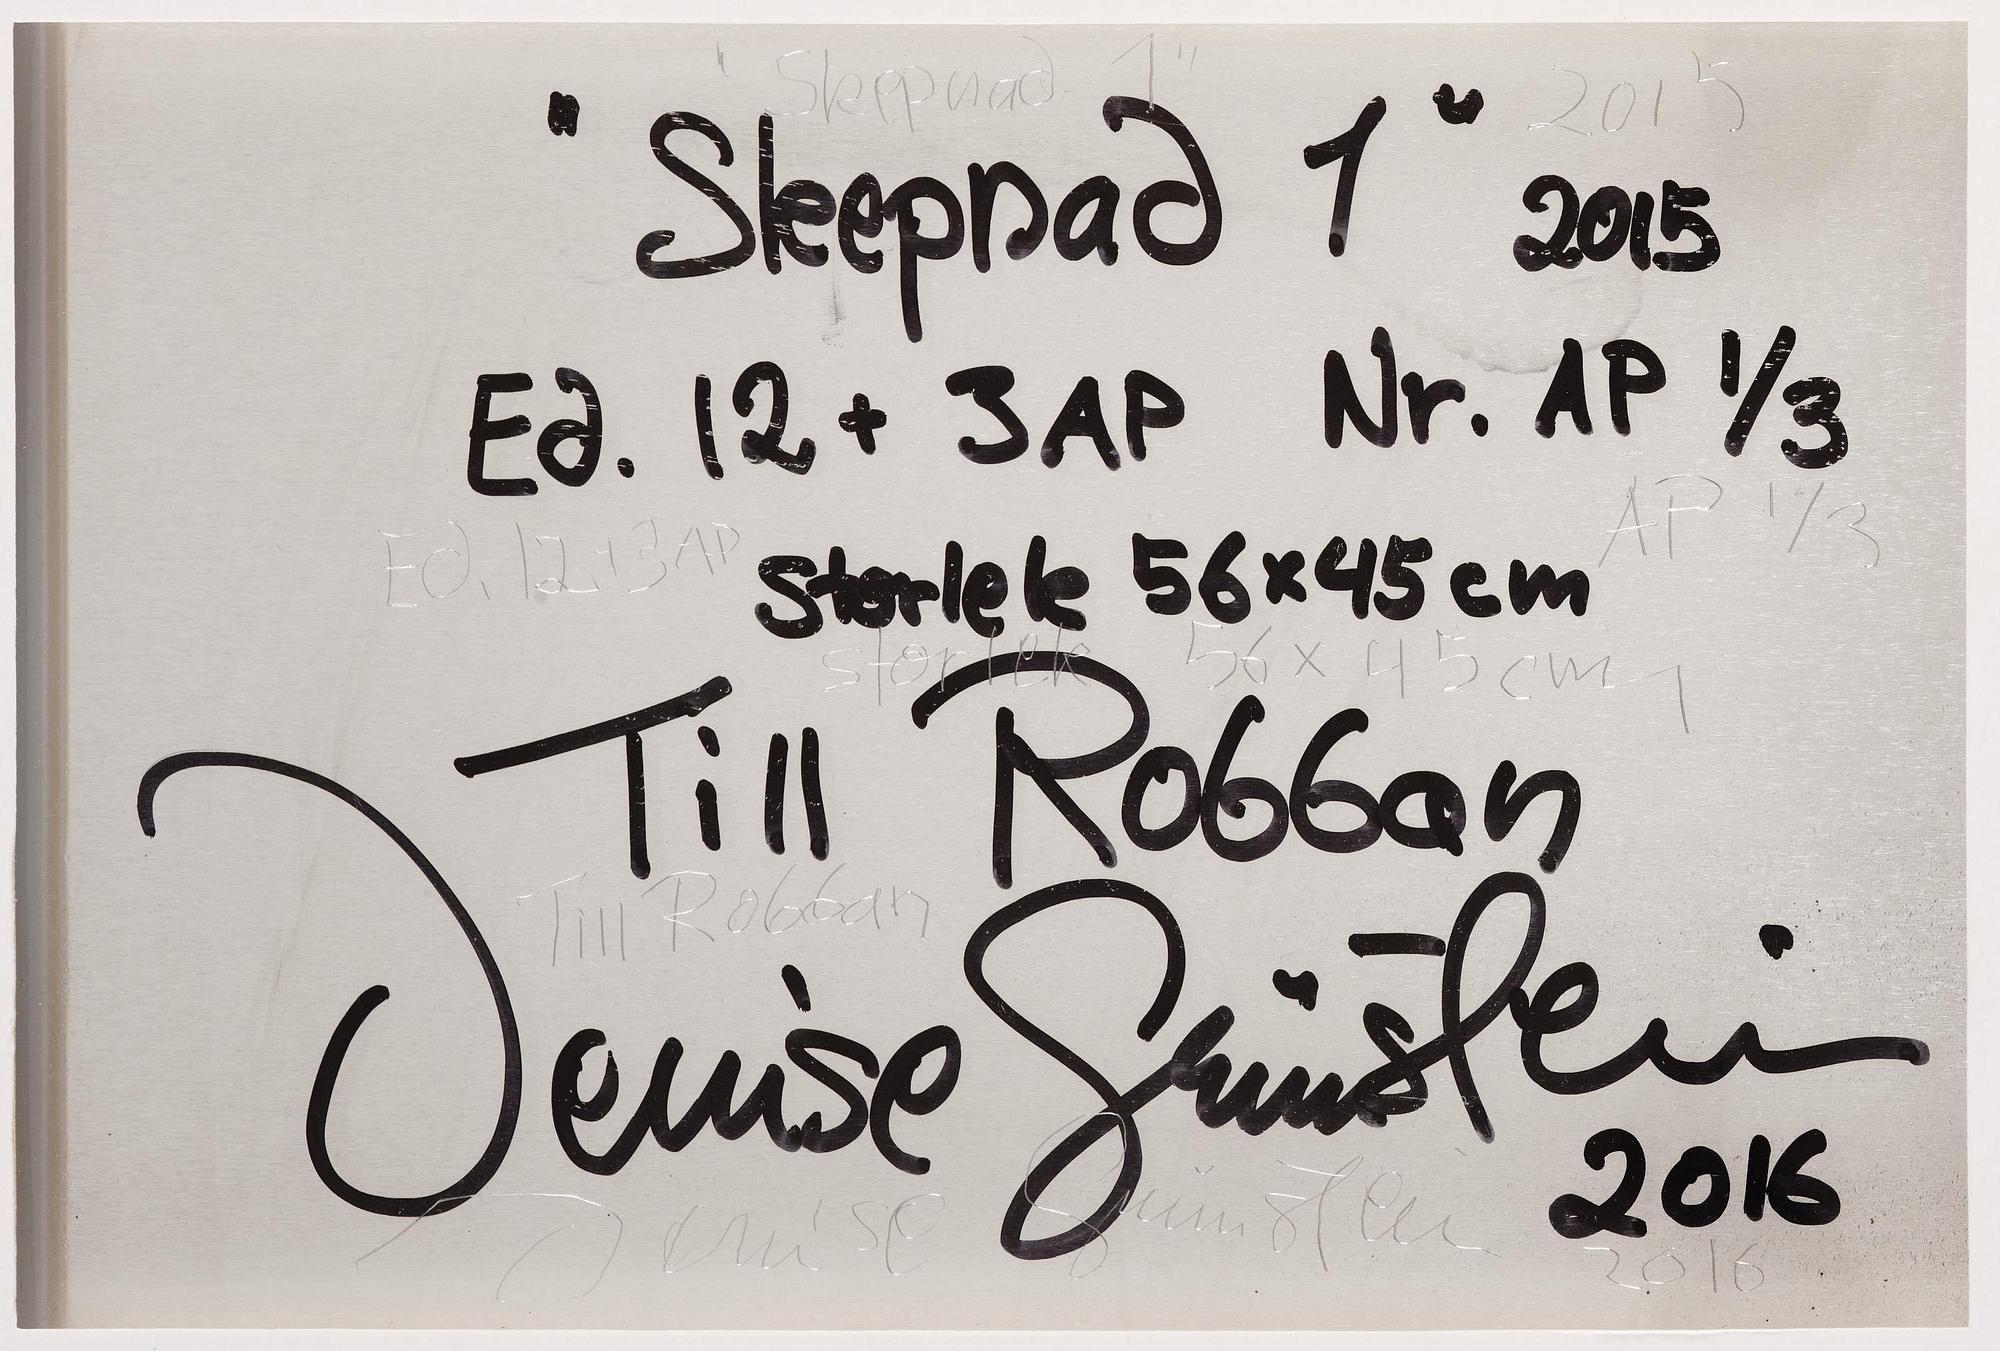 "Skepnad 1" 2015
"Skeepnad 1" 2015
Ed. 12 + 3 AP Nr. AP 1/3
Ed. 12 + 3 AP AP 1/3
Storlek 56x45 cm
storlek 56x45 cm
Till Robban
Till Robban
Denise Grünstein
2016
Denise Grünstein
2016